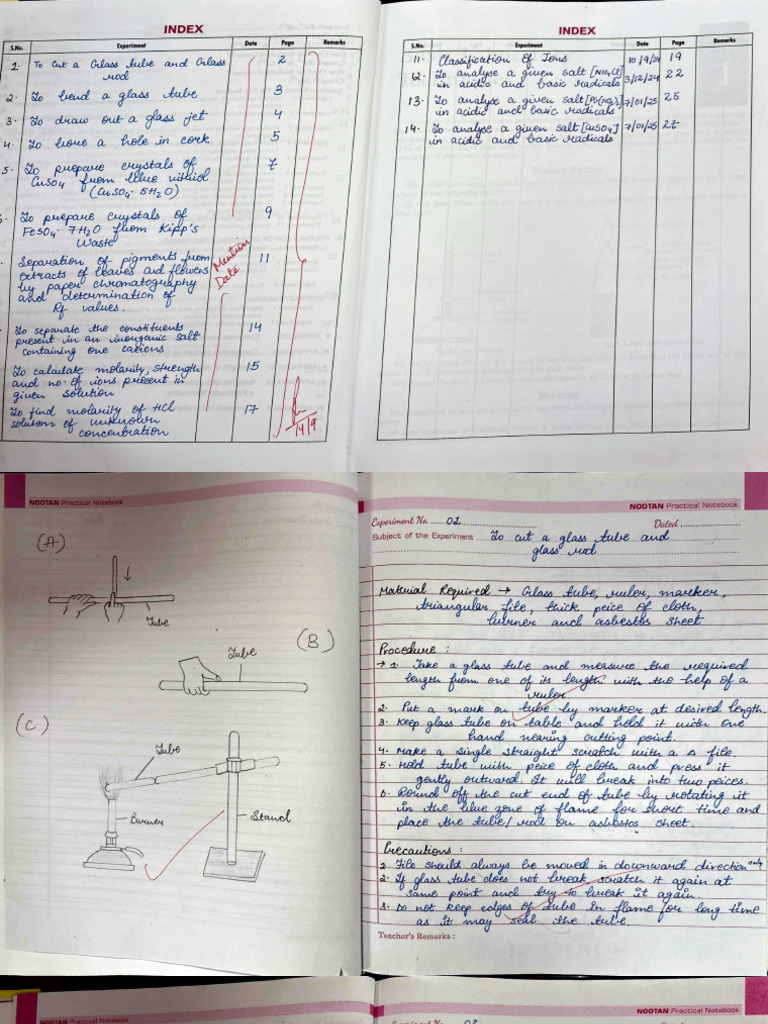 INDEX
S.No. Experiment Date Page Remarks
1. To Cut a Glass tube and Glass rod 2
2. To bend a glass tube 3
3. To draw out a glass jet 4
4. To bore a hole in cork 5
5. To prepare crystals of
CuSO4 from blue vitriol
(CuSO4. 5H2O) 7
To prepare crystals of 9
FeSO4. 7H2O from Kipp's
Waste
Separation of pigments from 11
extracts of leaves and flowers
by paper chromatography
and determination of
Rf values.
Mention
Date
To separate the constituents 14
present in an inorganic salt
containing one cations
To calculate molarity, strength 15
and no. of ions present in
given solution
To find molarity of HCl 17
solution of unknown
concentration
14/9
INDEX
S.No. Experiment Date Page Remarks
11. Classification of Ions 10/9/24 19
12. To analyse a given salt [NH4Cl] 3/12/24 22
in acidic and basic radicals
13. To analyse a given salt 7/01/25 25
in acidic and basic radicals
14. To analyse a given salt [CuSO4] 7/01/25 27
in acidic and basic radicals
NOOTAN Practical Notebook
(A)
Tube
(B)
Tube
(C)
Tube
Burner
Stand
NOOTAN Practical Notebook
Experiment No. 01 Dated
Subject of the Experiment To cut a glass tube and
glass rod
Material Required → Glass tube, ruler, marker,
triangular file, thick peice of cloth,
burner and asbestos sheet
Procedure :
→ 1. Take a glass tube and measure the required
length from one of its length with the help of a
ruler.
2. Put a mark on tube by marker at desired length.
3. Keep glass tube on table and hold it with one
hand nearing cutting point.
4. Make a single straight scratch with a Δ file.
5. Hold tube with peice of cloth and press it
gently outward. It will break into two peices.
6. Round off the cut end of tube by rotating it
in the blue zone of flame for short time and
place the tube/rod on asbestos sheet.
Precautions :
1. File should always be moved in downward direction only.
2. If glass tube does not break scratch it again at
same point and try to break it again.
3. Do not keep edges of tube in flame for long time
as it may seal the tube.
Teacher's Remarks :
NOOTAN Practical Notebook
NOOTAN Practical Notebook
Experiment No. 02